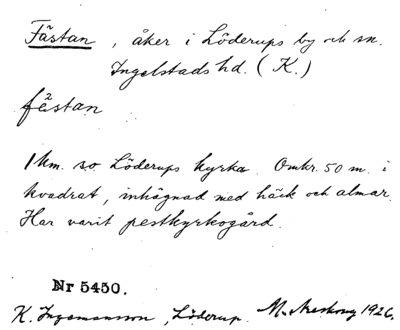 Fästan, åker i Löderups by och sn.
Ingelstads hd. (K.)
fästan
1 km. so Löderups kyrka. Omkr. 50 m. i
kvadrat, inhägnad med häck och almar.
Har varit pestkyrkogård.
Nr 5450.
K. Ingemansson, Löderup. M. Areskoug 1926.